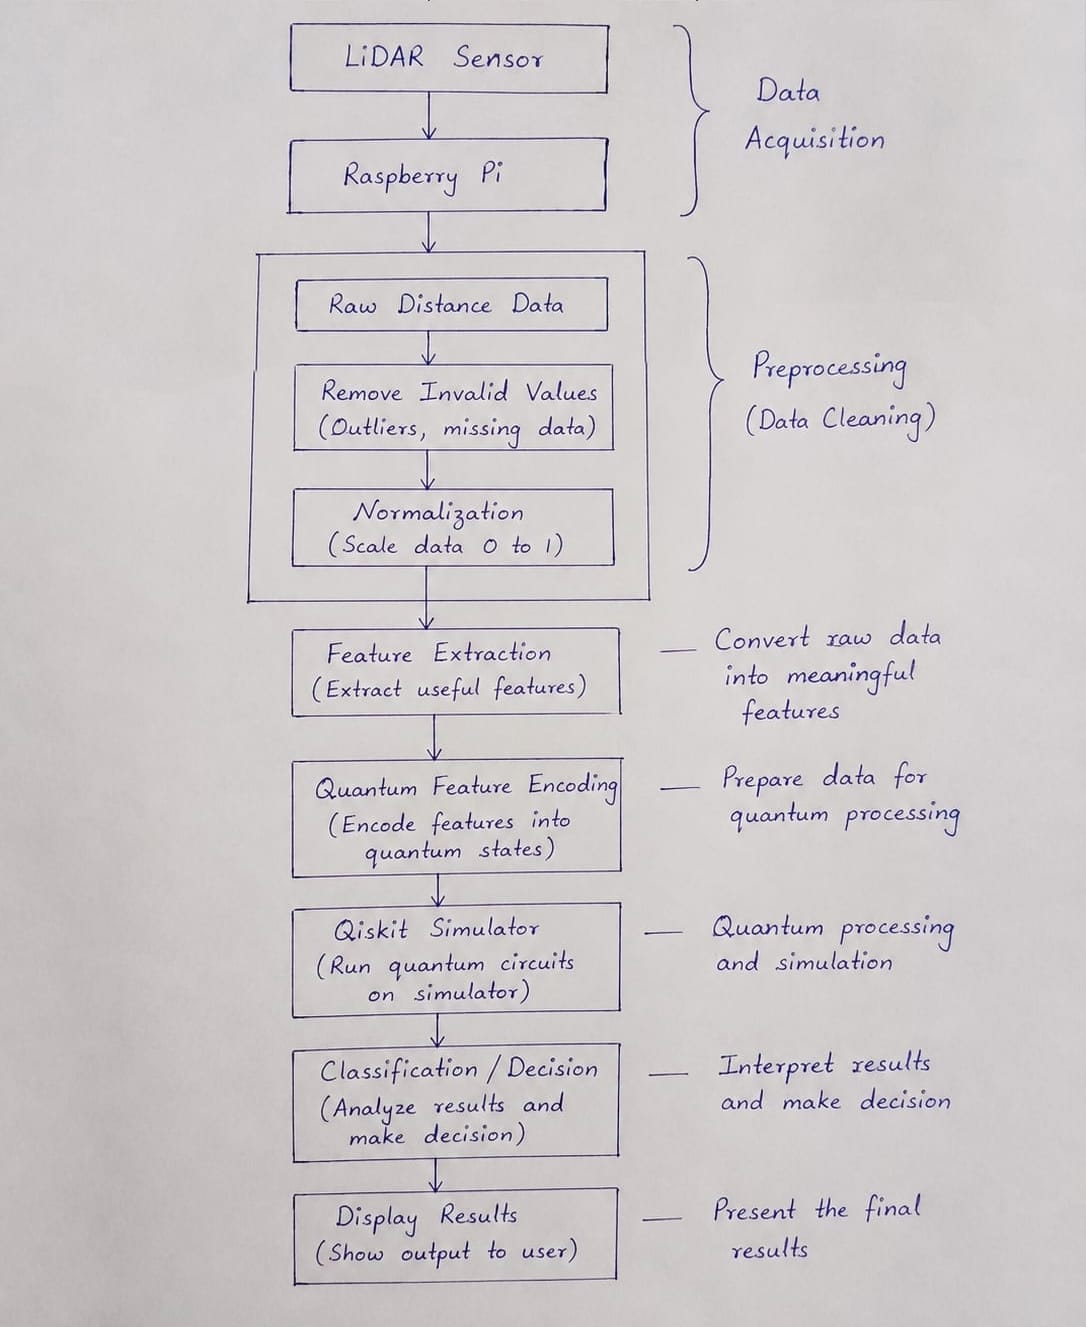 LiDAR Sensor
Data
Acquisition
Raspberry Pi
Raw Distance Data
Remove Invalid Values
(Outliers, missing data)
Preprocessing
(Data Cleaning)
Normalization
(Scale data 0 to 1)
Feature Extraction
(Extract useful features)
Convert raw data
into meaningful
features
Quantum Feature Encoding
(Encode features into
quantum states)
Prepare data for
quantum processing
Qiskit Simulator
(Run quantum circuits
on simulator)
Quantum processing
and simulation
Classification / Decision
(Analyze results and
make decision)
Interpret results
and make decision
Display Results
(Show output to user)
Present the final
results